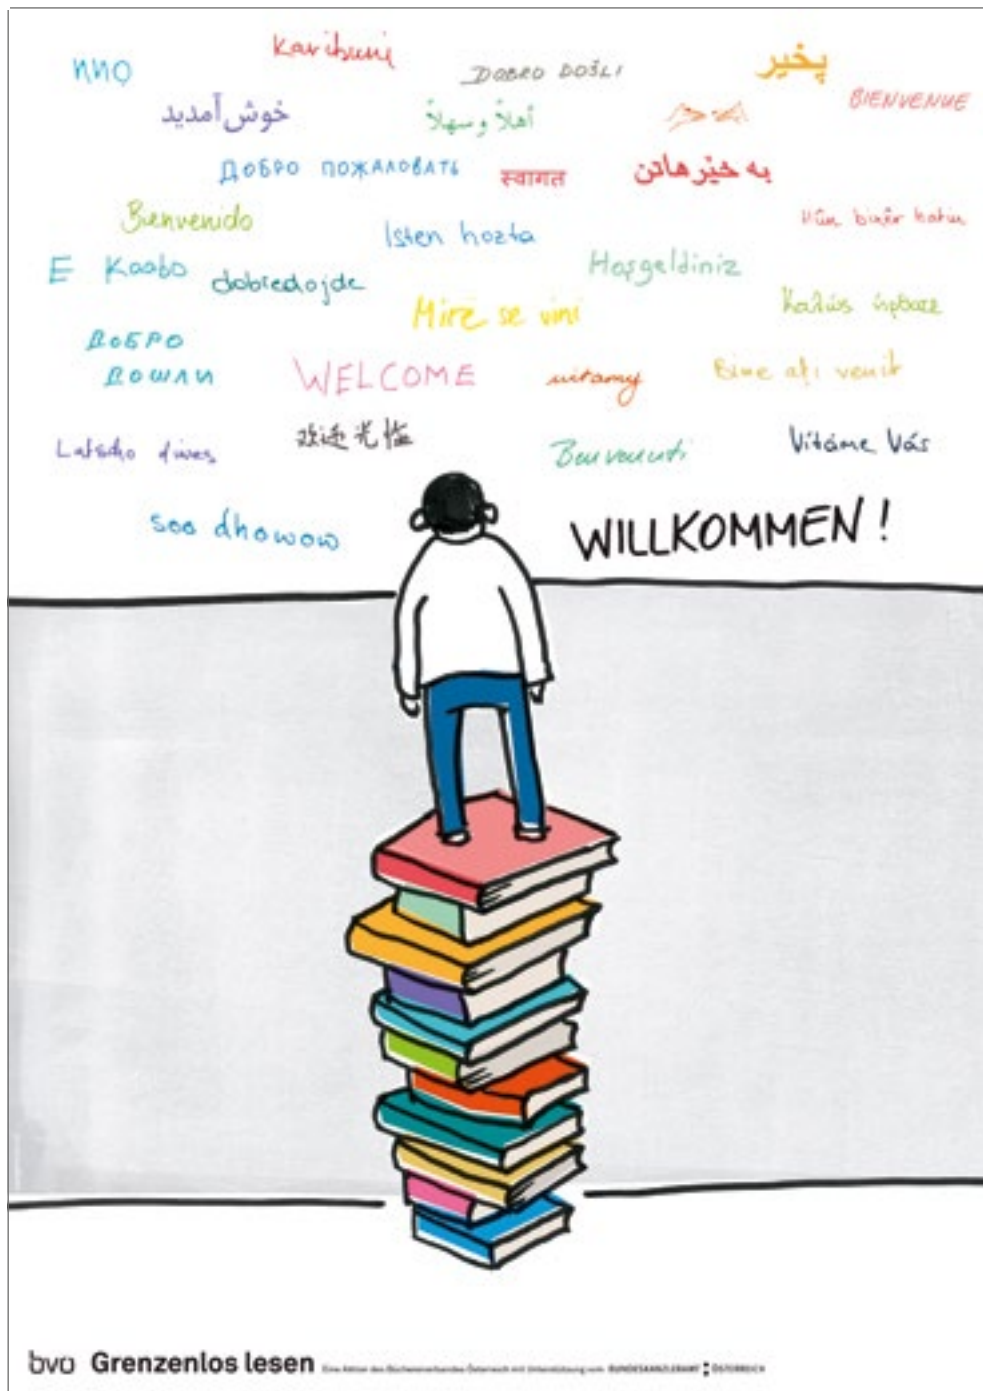 nnọ
Karibuni
DOBRO DOŠLI
پخیر
BIENVENUE
خوش آمدید
أهلاً وسهلاً
ДОБРО ПОЖАЛОВАТЬ
स्वागत
به خێرهاتن
Bienvenido
Isten hozta
Hûn bixêr hatin
E Kaabo
dobredojde
Hoşgeldiniz
Mirë se vini
Καλώς ήρθατε
ДОБРО
ДОШЛИ
WELCOME
witamy
Bine ați venit
Latscho diwes
欢迎光临
Benvenuti
Vítáme Vás
soo dhowow
WILLKOMMEN!
bvö Grenzenlos lesen Eine Aktion des Büchereiverbandes Österreich mit Unterstützung vom BUNDESKANZLERAMT ÖSTERREICH